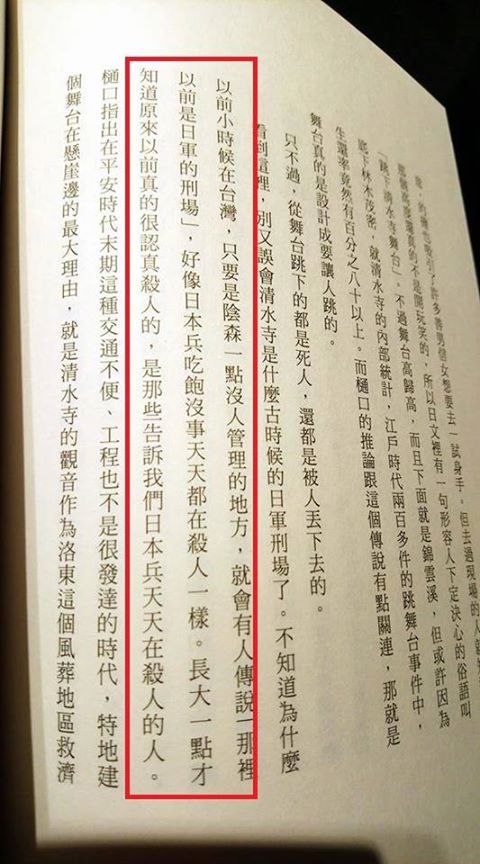 故，的確也吸引了許多善男信女想要去一試身手。但去過現場的人就知
那個高度還真的不是開玩笑的，所以日文裡有一句形容人下定決心的俗語叫
「跳下清水寺舞台」。不過舞台高歸高，而且下面就是錦雲溪，但或許因為
底下林木茂密，就清水寺的內部統計，江戶時代兩百多件的跳舞台事件中，
生還率竟然有百分之八十以上。而樋口的推論跟這個傳說有點關連，那就是
舞台真的是設計成要讓人跳的。
只不過，從舞台跳下的都是死人，還都是被人丟下去的。
看到這裡，別又誤會清水寺是什麼古時候的日軍刑場了。不知道為什麼
以前小時候在台灣，只要是陰森一點沒人管理的地方，就會有人傳說「那裡
以前是日軍的刑場」，好像日本兵吃飽沒事天天都在殺人一樣。長大一點才
知道原來以前真的很認真殺人的，是那些告訴我們日本兵天天在殺人的人。
樋口指出在平安時代末期這種交通不便、工程也不是很發達的時代，特地建
個舞台在懸崖邊的最大理由，就是清水寺的觀音作為洛東這個風葬地區救濟